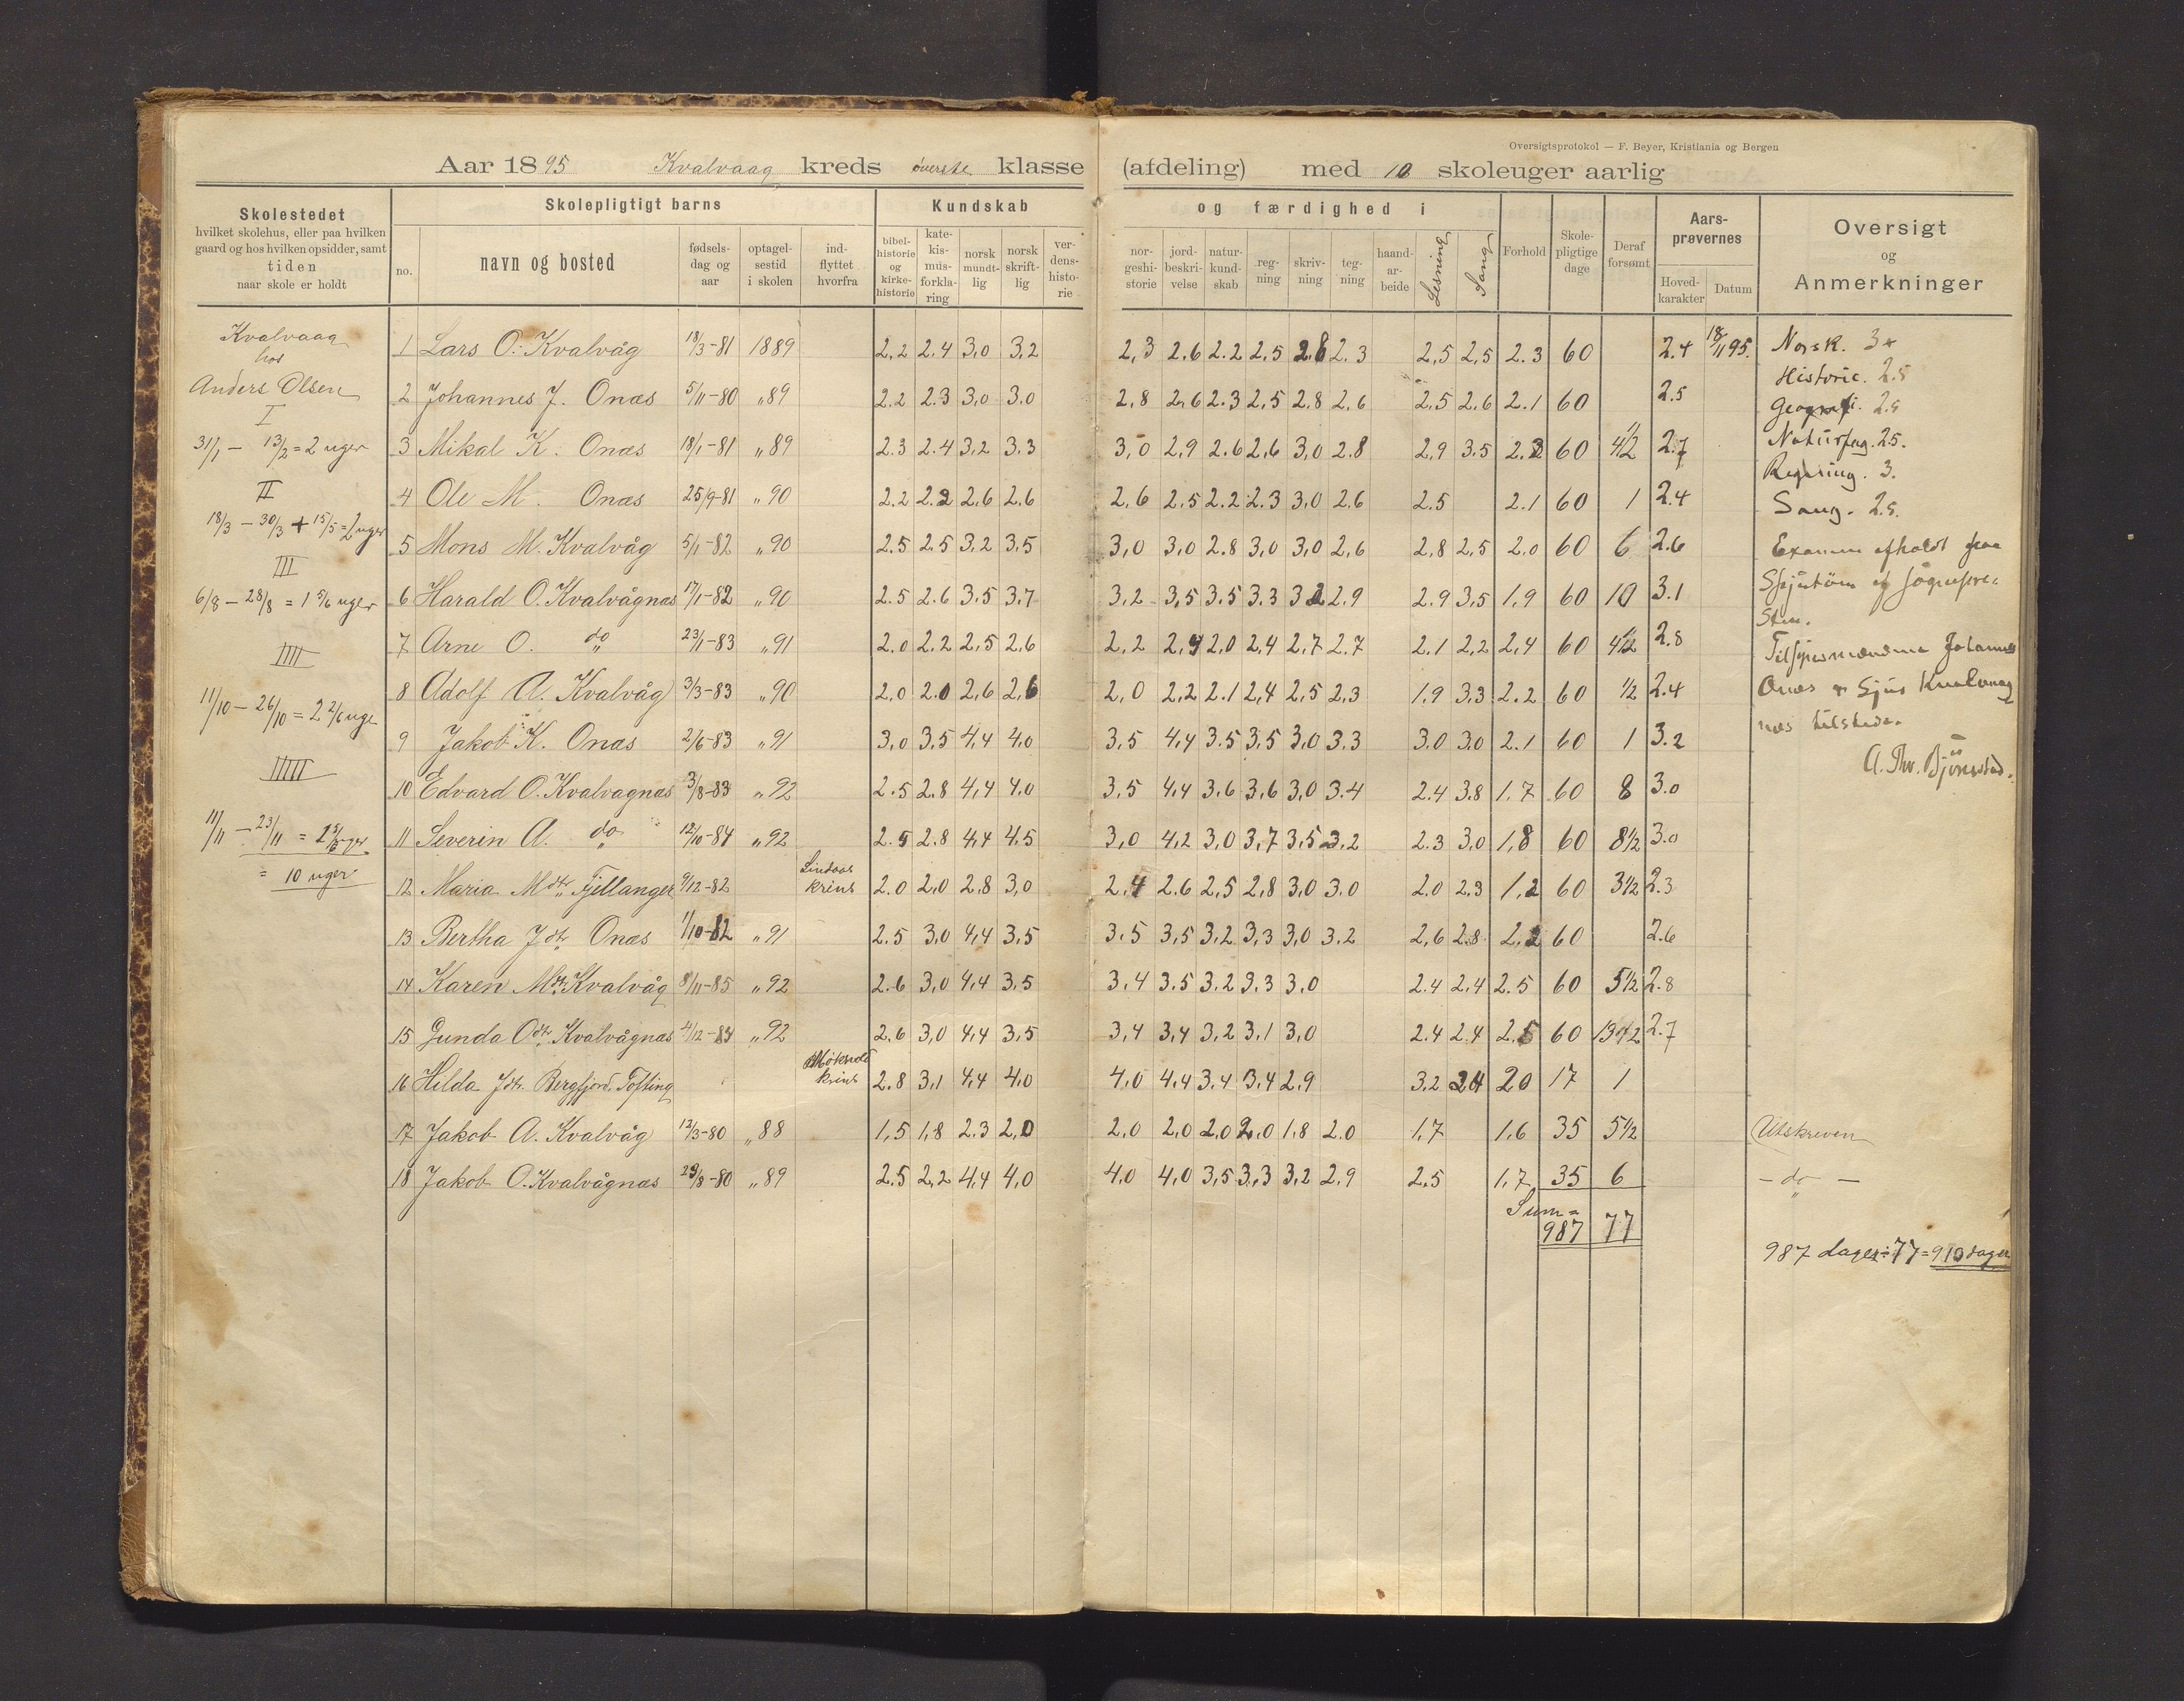 Oversigtsprotokol — F. Beyer, Kristiania og Bergen
Aar 1895 Kvalvaag kreds øverste klasse (afdeling) med 10 skoleuger aarlig
Skolestedet
hvilket skolehus, eller paa hvilken
gaard og hos hvilken opsidder, samt
tiden
naar skole er holdt
Skolepligtigt barns
no.
navn og bosted
fødsels-
dag og
aar
optagel-
sestid
i skolen
ind-
flyttet
hvorfra
Kundskab og færdighed i
bibel-
historie
og
kirke-
historie
kate-
kis-
mus-
forkla-
ring
norsk
mundt-
lig
norsk
skrift-
lig
ver-
dens-
histo-
rie
nor-
geshi-
storie
jord-
beskri-
velse
natur-
kund-
skab
reg-
ning
skriv-
ning
teg-
ning
haand-
ar-
beide
Læsning
Sang
Forhold
Skole-
pligtige
dage
Deraf
forsømt
Aars-
prøvernes
Hoved-
karakter
Datum
Oversigt
og
Anmerkninger
Kvalvaag
hos
Anders Olsen
I
31/1 – 13/2 = 2 uger
II
18/3 – 30/3 + 15/5 = 2 uger
III
6/8 – 28/8 = 1 5/6 uger
IIII
11/10 – 26/10 = 2 2/6 uge
IIIII
11/11 – 23/11 =
= 10 uger
1 Lars O. Kvalvåg 18/3-81 1889 2,2 2.4 3,0 3,2 2,3 2.6 2.2 2,5 2.8 2.3 2,5 2,5 2.3 60 2.4 18/11 95.
2 Johannes J. Onæs 5/11-80 „89 2.2 2.3 3,0 3.0 2,8 2,6 2.3 2,5 2.8 2,6 2,5 2.6 2.1 60 2.5
3 Mikal K. Onæs 18/1-81 „89 2.3 2.4 3,2 3,3 3,0 2,9 2.6 2,6 3,0 2.8 2,9 3.5 2.2 60 4 1/2 2.7
4 Ole M. Onæs 25/9-81 „90 2.2 2.2 2,6 2.6 2,6 2.5 2.2 2.3 3,0 2.6 2.5 2.1 60 1 2.4
5 Mons M. Kvalvåg 5/1-82 „90 2.5 2.5 3,2 3,5 3,0 3,0 2.8 3,0 3,0 2,6 2,8 2,5 2.0 60 6 2.6
6 Harald O. Kvalvågnæs 17/1-82 „90 2.5 2.6 3.5 3,7 3,2 3,5 3.5 3.3 3.2 2.9 2.9 3,5 1,9 60 10 3.1
7 Arne O. do 23/1-83 „91 2.0 2.2 2,5 2,6 2,2 2,4 2,0 2,4 2,7 2.7 2.1 2,2 2,4 60 4 1/2 2.8
8 Adolf A. Kvalvåg 3/3-83 „90 2,0 2.0 2,6 2,6 2,0 2,2 2.1 2,4 2,5 2,3 1,9 3,3 2.2 60 1/2 2.4
9 Jakob K. Onæs 2/6-83 „91 3,0 3,5 4,4 4,0 3,5 4,4 3.5 3,5 3,0 3.3 3.0 3.0 2.1 60 1 3.2
10 Edvard O. Kvalvagnæs 3/8-83 „92 2.5 2.8 4,4 4.0 3,5 4,4 3,6 3,6 3,0 3.4 2.4 3.8 1,7 60 8 3.0
11 Severin A. do 12/10-84 „92 2.5 2.8 4,4 4,5 3,0 4,2 3,0 3,7 3,5 3,2 2.3 3,0 1,8 60 8 1/2 3.0
12 Maria Mdtr. Fjellanger 9/12-82 Lindaas kreds 2.0 2,0 2,8 3,0 2,4 2.6 2,5 2,8 3,0 3.0 2.0 2,3 1,2 60 3 1/2 2.3
13 Bertha Jdtr. Onæs 1/10-82 „91 2.5 3,0 4,4 3,5 3.5 3,5 3,2 3,3 3,0 3,2 2,6 2.8 2,2 60 2.6
14 Karen Mdtr. Kvalvåg 8/11-85 „92 2.6 3,0 4,4 3,5 3,4 3.5 3.2 3,3 3,0 2.4 2,4 2.5 60 5 1/2 2.8
15 Gunda Odtr. Kvalvågnæs 4/12-84 „92 2,6 3,0 4,4 3,5 3,4 3,4 3,2 3,1 3,0 2.4 2.4 2.5 60 13 1/2 2.7
16 Hilda Jdtr. Bergfjord. Tofting kreds 2.8 3,1 4,4 4,0 4,0 4,4 3.4 3,4 2,9 3,2 2.4 2.0 17 1
17 Jakob A. Kvalvåg 12/3-80 „88 1,5 1,8 2.3 2,0 2.0 2,0 2,0 2.0 1,8 2.0 1,7 1,6 35 5 1/2 Utskreven
18 Jakob O. Kvalvågnæs 29/8-80 „89 2.5 2,2 4,4 4,0 4,0 4,0 3,5 3,3 3,2 2,9 2.5 1,7 35 6 – do –
Sum =
987 77
987 dage ÷ 77 = 910 dage
Norsk. 3+
Historie. 2.5
Geografi. 2.5
Naturfag. 2.5.
Regning. 3.
Sang. 2.5.
Examen afholdt paa
af sognepre-
sten.
Tilsynsmændene Johannes
Onæs & Sjur Kvalvaag
næs tilstede.
A. Thv. Bjørnstad.